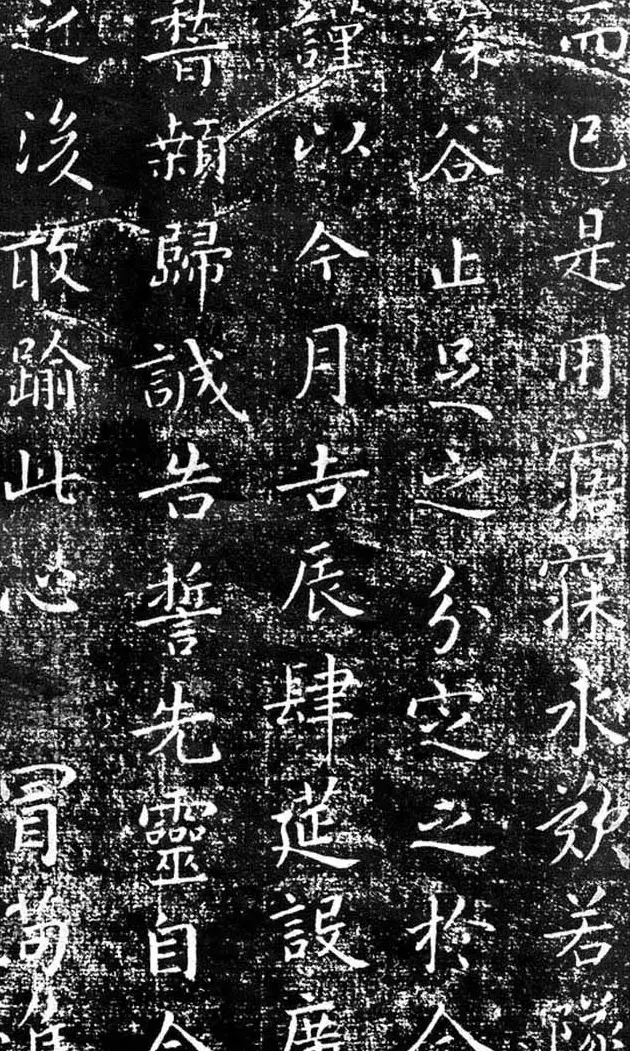 而已是用寤寐永歎若隊
深谷止足之分定之於今
謹以今月吉辰肆莚設席
稽顙歸誠告誓先靈自今
之後敢踰此心冒苟進